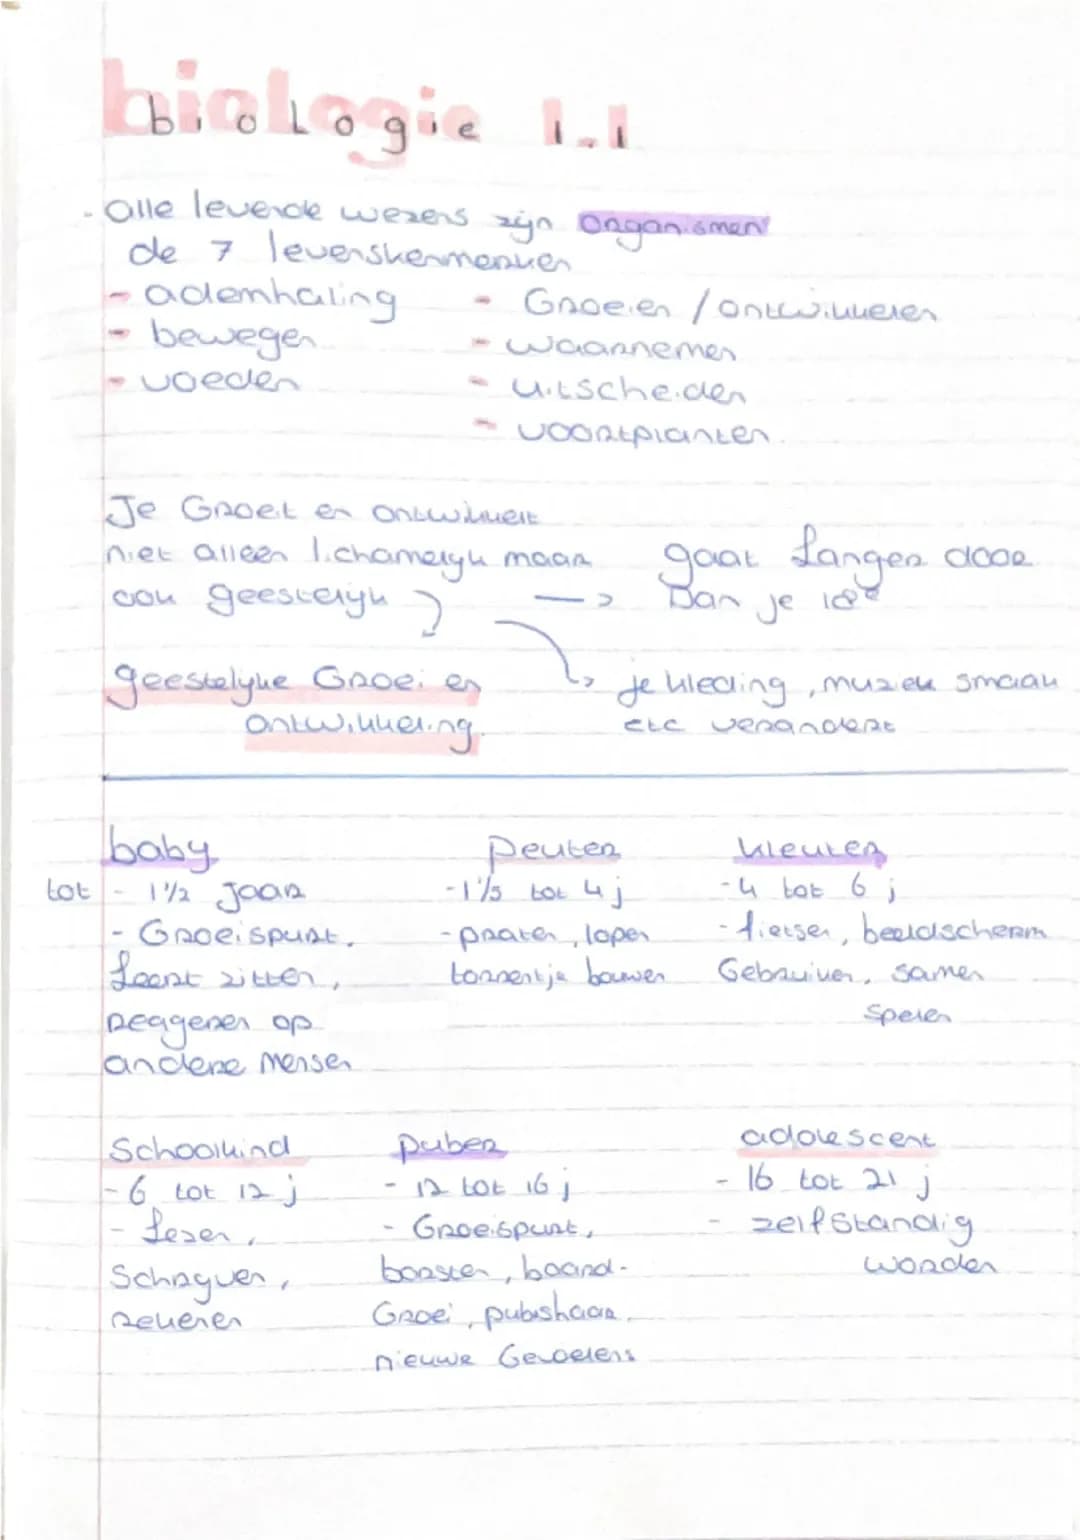 biologie 1.1
- alle levende wezens zijn organismen
de 7 levenskenmerken
- ademhaling
- bewegen
- voeden
- Groeien / ontwikkelen
- waarnemen
- uitscheiden
- voortplanten
Je Groeit en ontwikkelt
niet alleen lichamelijk maar
ook geestelijk
-> gaat Langer door
Dan je 18e
geestelijke Groei en
ontwikkeling
je kleding, muziek smaak
etc verandert
baby
tot - 1 1/2 Jaar
- Groeispurt,
Leert zitten,
Reageren op
andere mensen
peuter
- 1 1/2 tot 4 j
- praten, lopen
torrentje bouwen
kleuter
- 4 tot 6 j
- fietsen, beeldscherm
Gebruiken, samen
spelen
Schoolkind
- 6 tot 12 j
- Lezen,
Schrijven,
Rekenen
puber
- 12 tot 16 j
- Groeispurt,
borsten, baard-
Groei, pubishaar,
nieuwe Gevoelens
adolescent
- 16 tot 21 j
- zelfstandig
worden